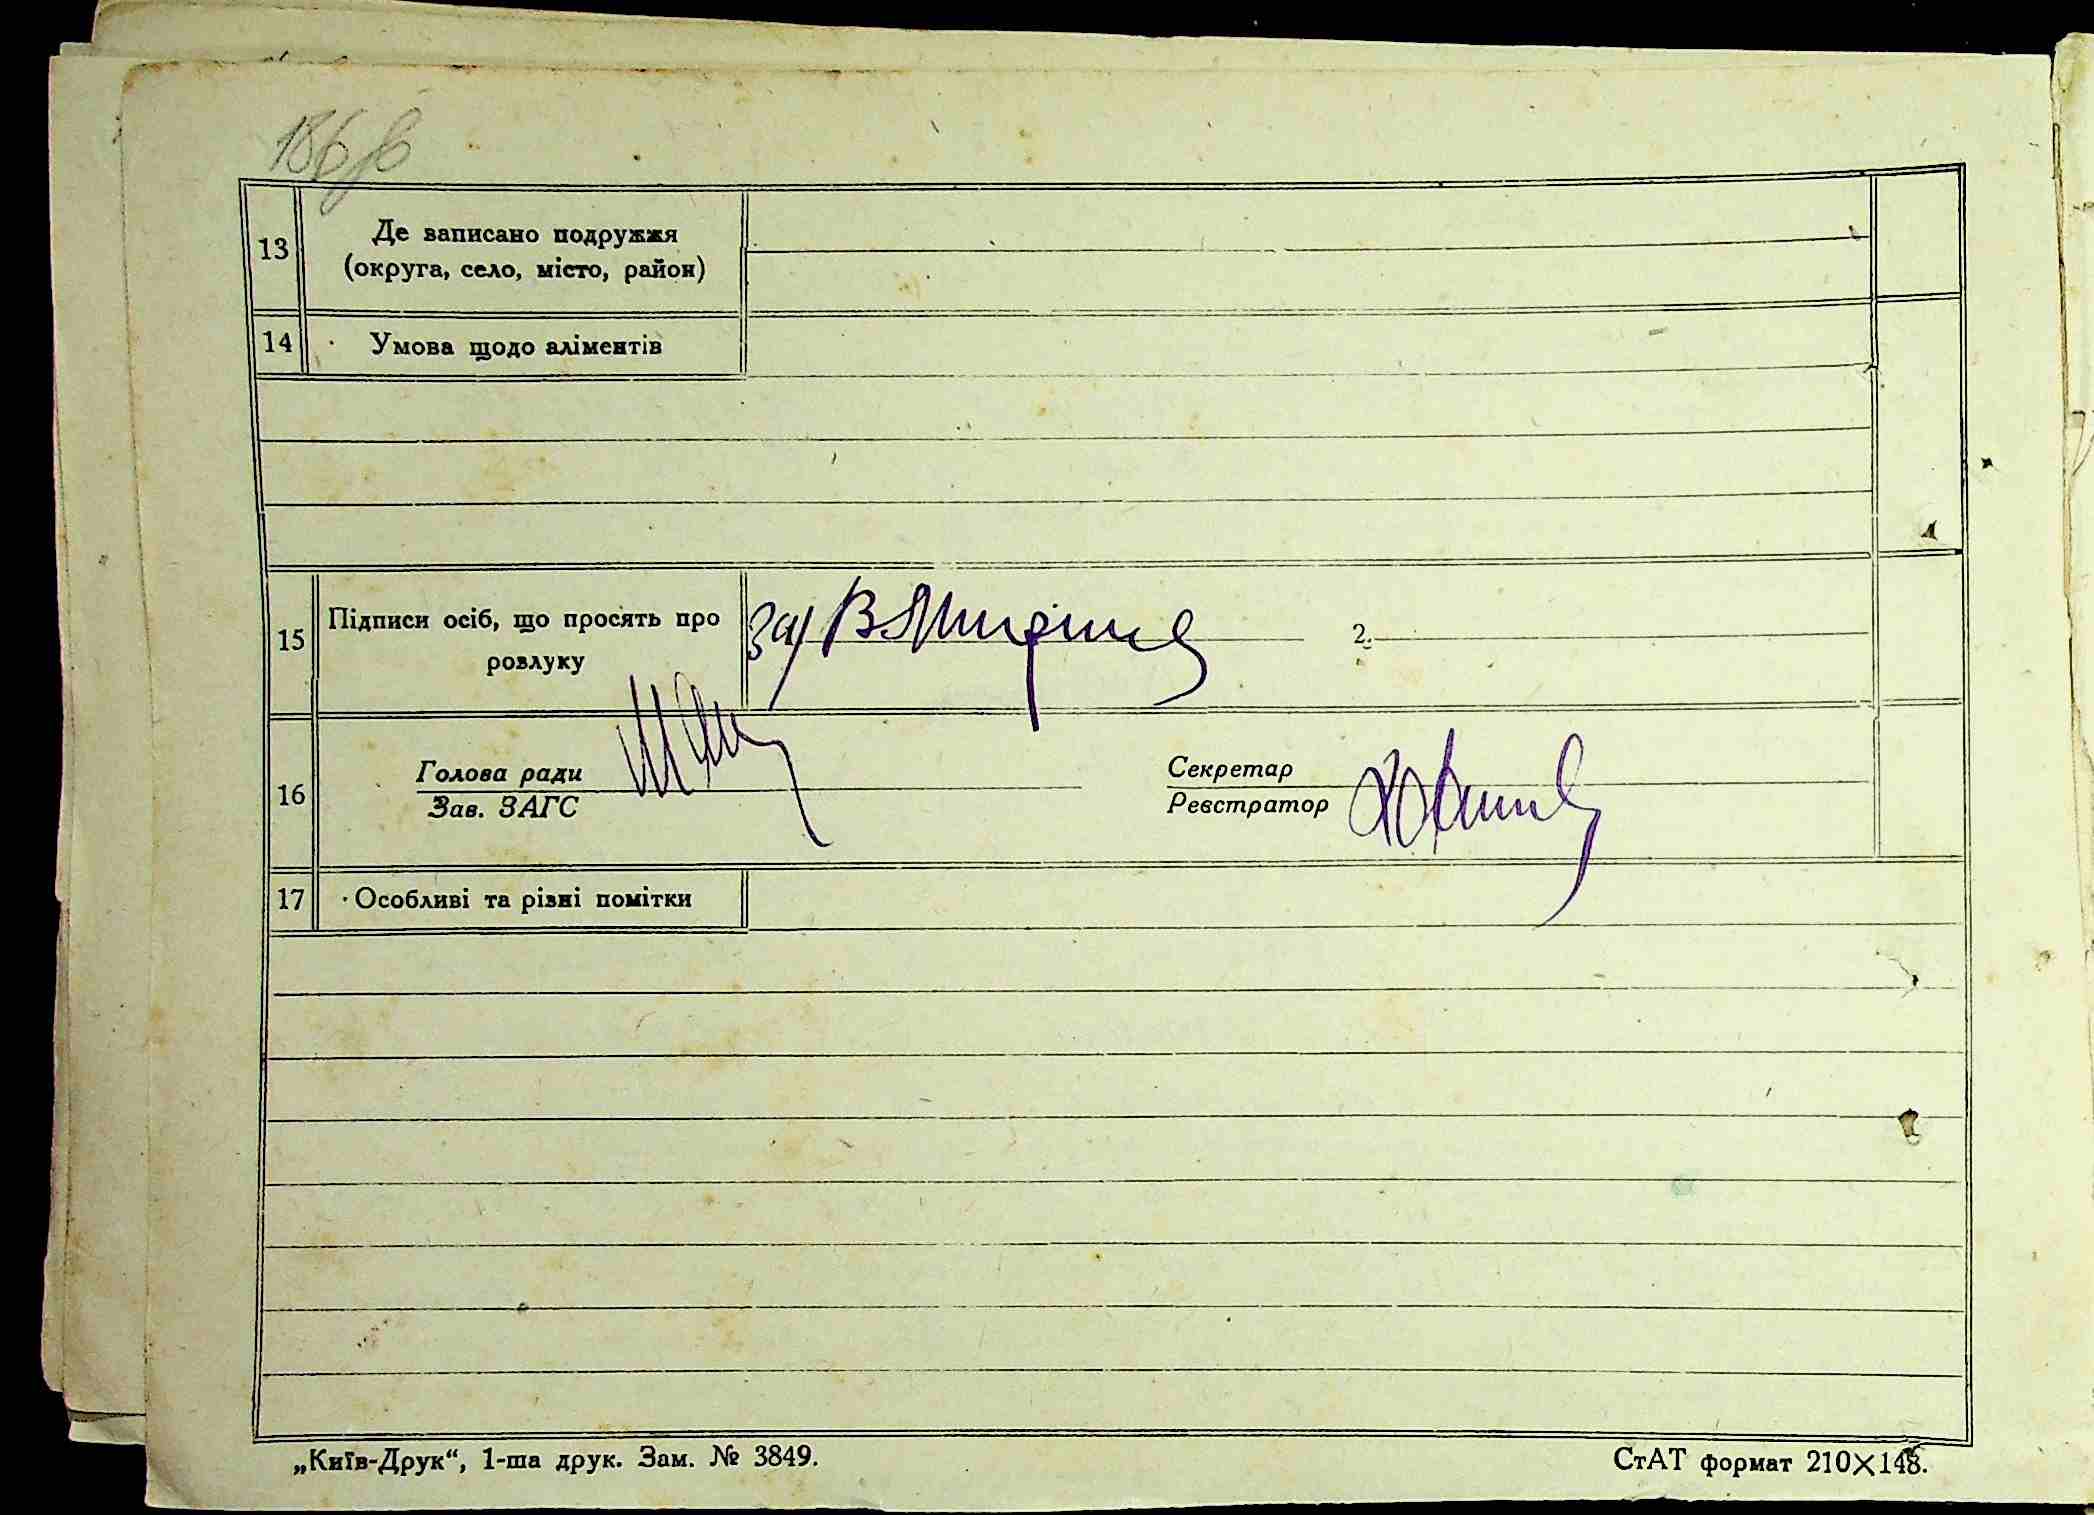 13 Де записано подружжя
(округа, село, місто, район)
14 Умова щодо аліментів
15 Підписи осіб, що просять про
розлуку
2.
16 Голова ради
Зав. ЗАГС
Секретар
Реєстратор
17 Особливі та різні помітки
„Київ-Друк“, 1-ша друк. Зам. № 3849.
СтАТ формат 210×148.